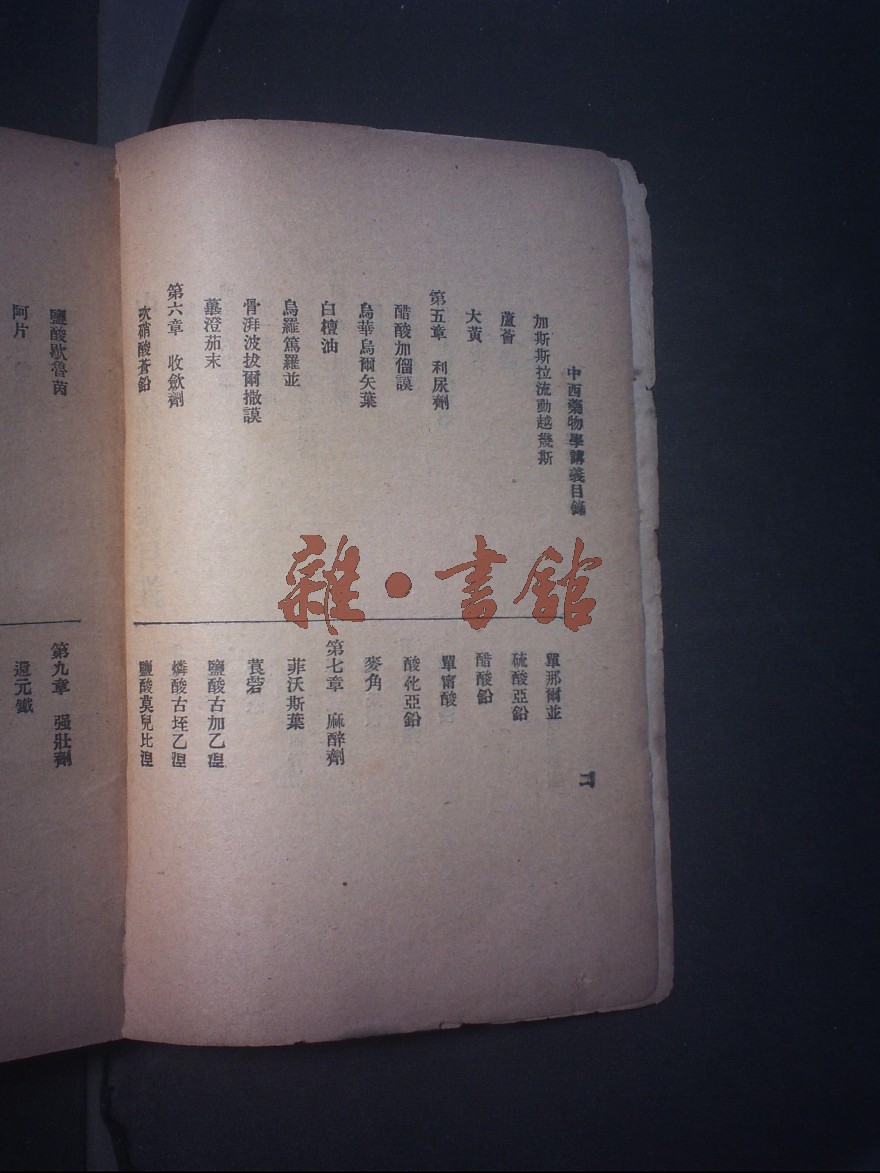 中西藥物學講義目錄
二
加斯斯拉流動越幾斯
蘆薈
大黃
第五章 利尿劑
醋酸加僧謨
烏華烏爾矢葉
白檀油
烏羅篤羅並
骨湃波拔爾撒謨
蓽澄茄末
第六章 收斂劑
次硝酸蒼鉛
單那爾並
硫酸亞鉛
醋酸鉛
單甯酸
酸化亞鉛
麥角
第七章 麻醉劑
菲沃斯葉
莨菪
鹽酸古加乙涅
燐酸古垤乙涅
鹽酸莫兒比涅
鹽酸歇魯茵
阿片
第九章 强壯劑
還元鐵
雜·書館